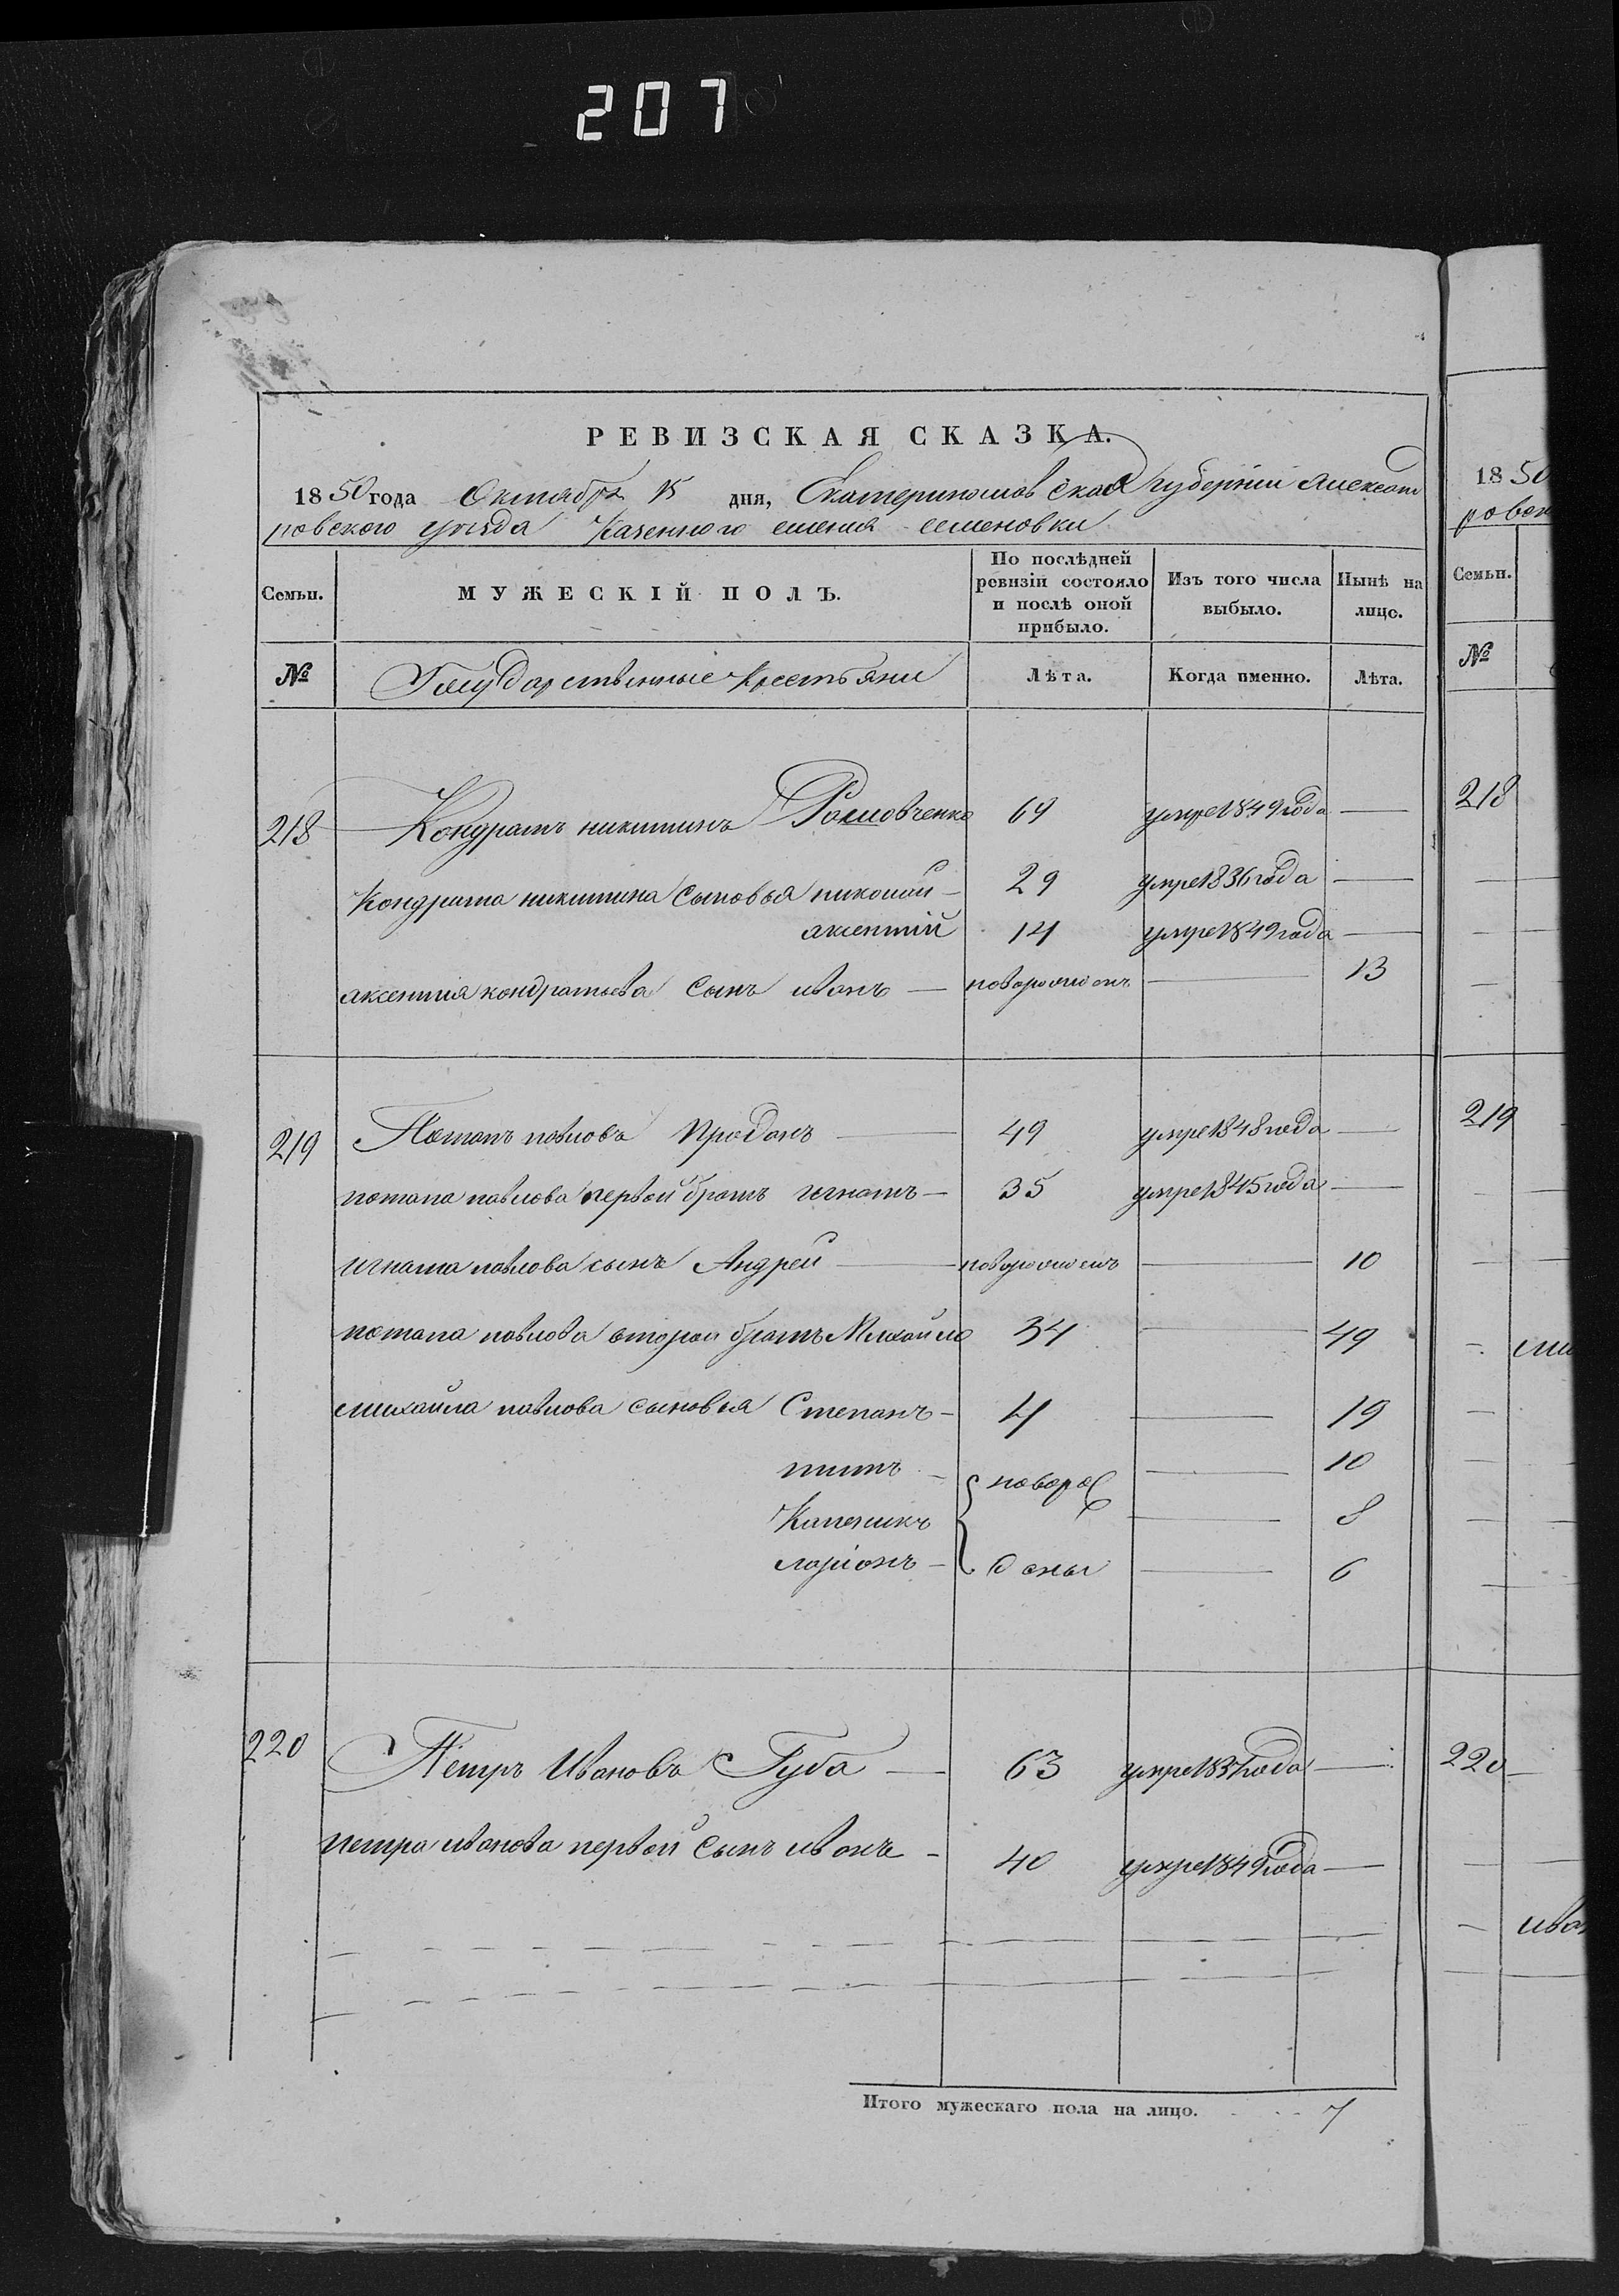 207
РЕВИЗСКАЯ СКАЗКА.
1850 года Октября 15 дня, Екатеринославской губерніи Александ
ровского уезда Казенного селения семеновки
Семьи. МУЖЕСКІЙ ПОЛЪ. По послѣдней ревизіи состояло и послѣ оной прибыло. Изъ того числа выбыло. Нынѣ на лицо.
№ Государственные крестьяни Лѣта. Когда именно. Лѣта.
218 Кондратъ никитинъ 69 умре 1849 года —
Кондрата никитина сыновья николай — 29 умре 1836 года —
аксентій 14 умре 1849 года —
аксентия кондратьева сынъ иванъ — новорожденъ — 13
219 Потапъ павловъ Проданъ — 49 умре 1848 года —
потапа павлова первой братъ игнатъ — 35 умре 1845 года —
игната павлова сынъ Андрей — новорожденъ — 10
потапа павлова второй братъ Михайло 34 — 49
михайла павлова сыновья Степанъ — 4 — 19
титъ — новоро — 10
— 8
ларіонъ — жденые — 6
220 Петръ Ивановъ Губа — 63 умре 1837 года —
петра иванова первой сынъ иванъ — 40 умре 1849 года —
Итого мужескаго пола на лицо. 7
1850
ровск
Семьи.
№
218
219
ми
220
ива